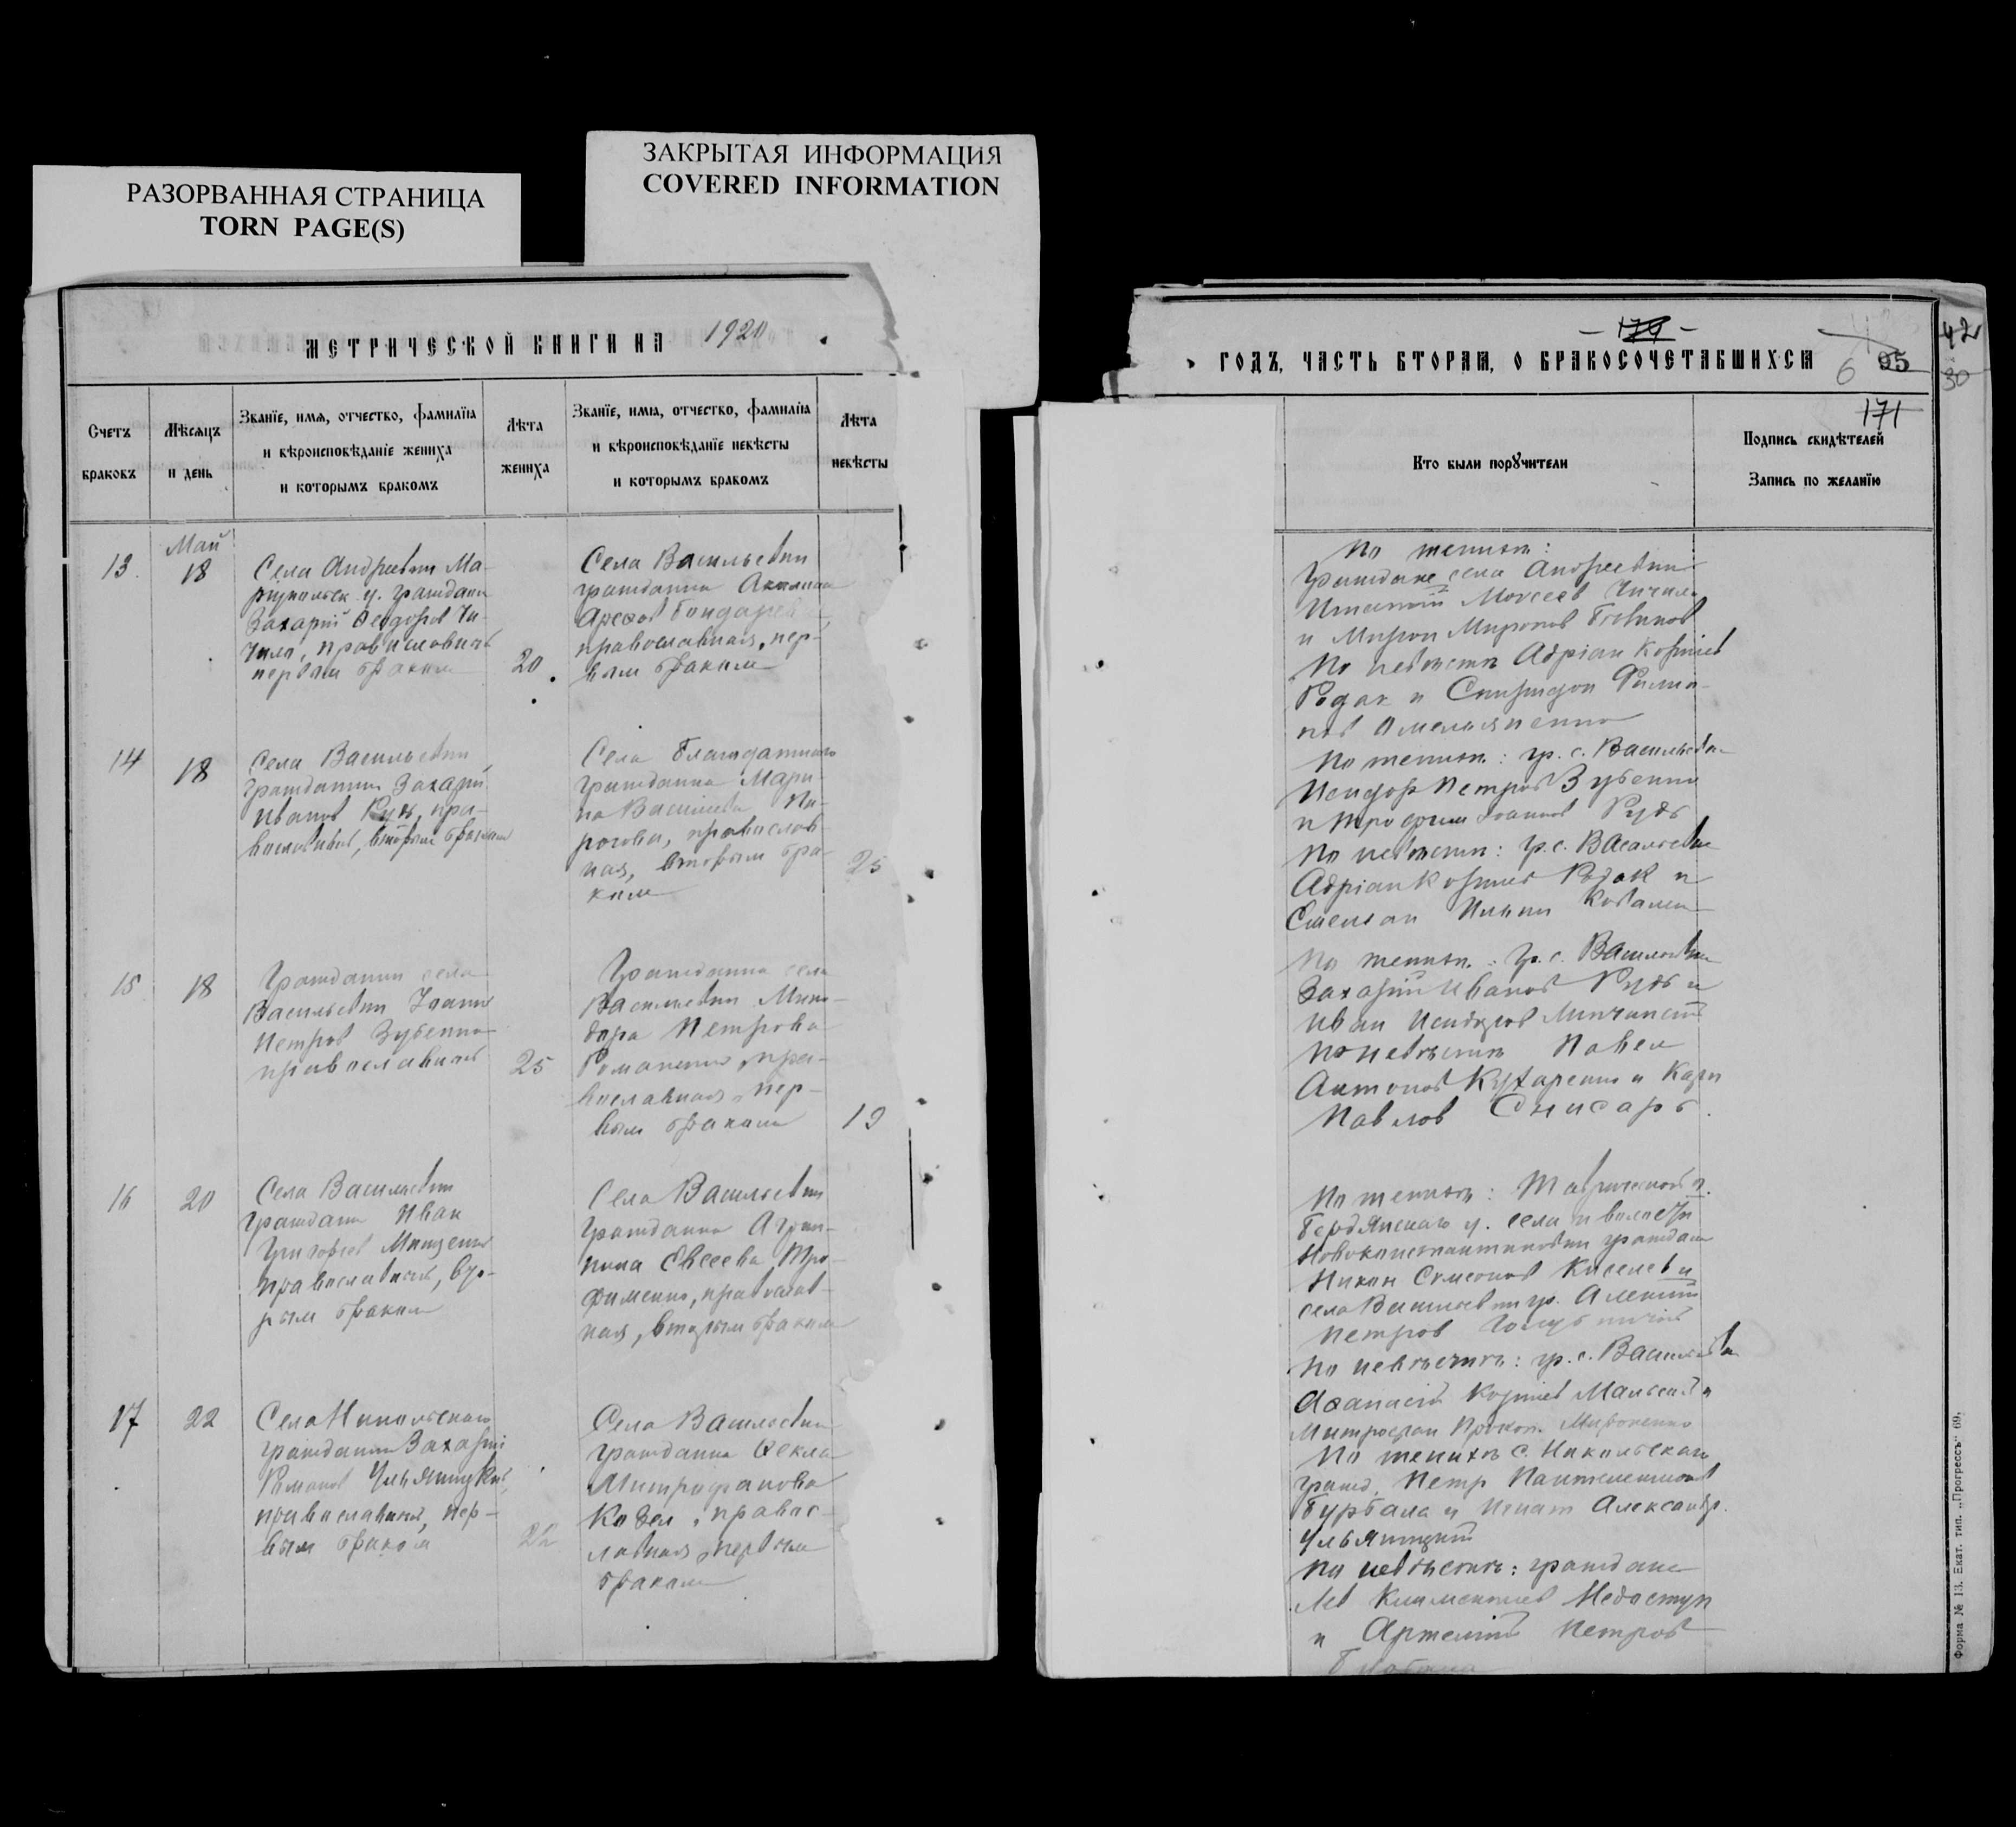 РАЗОРВАННАЯ СТРАНИЦА
TORN PAGE(S)
ЗАКРЫТАЯ ИНФОРМАЦИЯ
COVERED INFORMATION
МЕТРИЧЕСКОЙ КНИГИ НА 1920
Счетъ браковъ
Мѣсяцъ и день
Званіе, имя, отчество, фамилія
и вѣроисповѣданіе жениха
и которымъ бракомъ
Лѣта жениха
Званіе, имя, отчество, фамилія
и вѣроисповѣданіе невѣсты
и которымъ бракомъ
Лѣта невѣсты
13
Май
18
Села Андреевки Ма-
риупольск. у. гражданин
Захарий Феодоров Чи-
чило, православный
первым браком
20
Села Васильевки
гражданка
Бондарева
православная, пер-
вым браком
14
18
Села Васильевки
гражданин Захарий
Иванов Рудь, пра-
вославный, вторым браком
Села Благодатного
гражданка Мари-
на Васильева Пи-
рогова, православ-
ная, вторым бра-
ком
25
15
18
Гражданин села
Васильевки Иоанн
Петров Зубенко
православный
25
Гражданка села
Васильевки Мино-
дора Петрова
Романенко, пра-
вославная, пер-
вым браком
19
16
20
Села Васильевки
гражданин Иван
Григорьев Мищенко
православный, вто-
рым браком
Села Васильевки
гражданка Агрип-
пина Евсеева Тро-
фименко, православ-
ная, вторым браком
17
22
Села Никольского
гражданин Захарий
Романов Ульяницкий,
православный, пер-
вым браком
22
Села Васильевки
гражданка Фекла
Митрофанова
Козел, правос-
лавная, первым
браком
- 170 -
6
95
42
30
ГОДЪ, ЧАСТЬ ВТОРАЯ, О БРАКОСОЧЕТАВШИХСЯ
171
Кто были поручители
Подпись свидѣтелей
Запись по желанію
По жениху:
граждане села Андреевки
Игнатий Моисеев Чичило
и Мирон Миронов
По невесте Адріан Корниев
Родак и Спиридон Филип-
пов Омельяненко
По жениху: гр. с. Васильевки
Исидор Петров Зубенко
и Трофим Іоаннов Рудь
По невесте: гр. с. Васильевки
Адріан Корниев Родак и
Емельян Ильин
По жениху: гр. с. Васильевки
Захарий Иванов Рудь и
Иван Исидоров
По невесте Павел
Антонов Кухаренко и Карп
Павлов Снисарь.
По жениху: Таврической г.
Бердянского у. села и волости
Новоконстантиновки гражданин
Никон Симеонов Киселев и
села Васильевки гр. Алексий
Петров
По невесте: гр. с. Васильевки
Афанасий Корниев и
Митрофан Прокоп. Мироненко
По жениху с. Никольского
гражд. Петр Пантелеимонов
Бурбала и Игнат Александр.
Ульяницкий
По невесте: граждане
Лев Климентиев Недоступ
и Артемий Петров
Форма № 13. Екат. тип. „Прогрессъ“ 69.